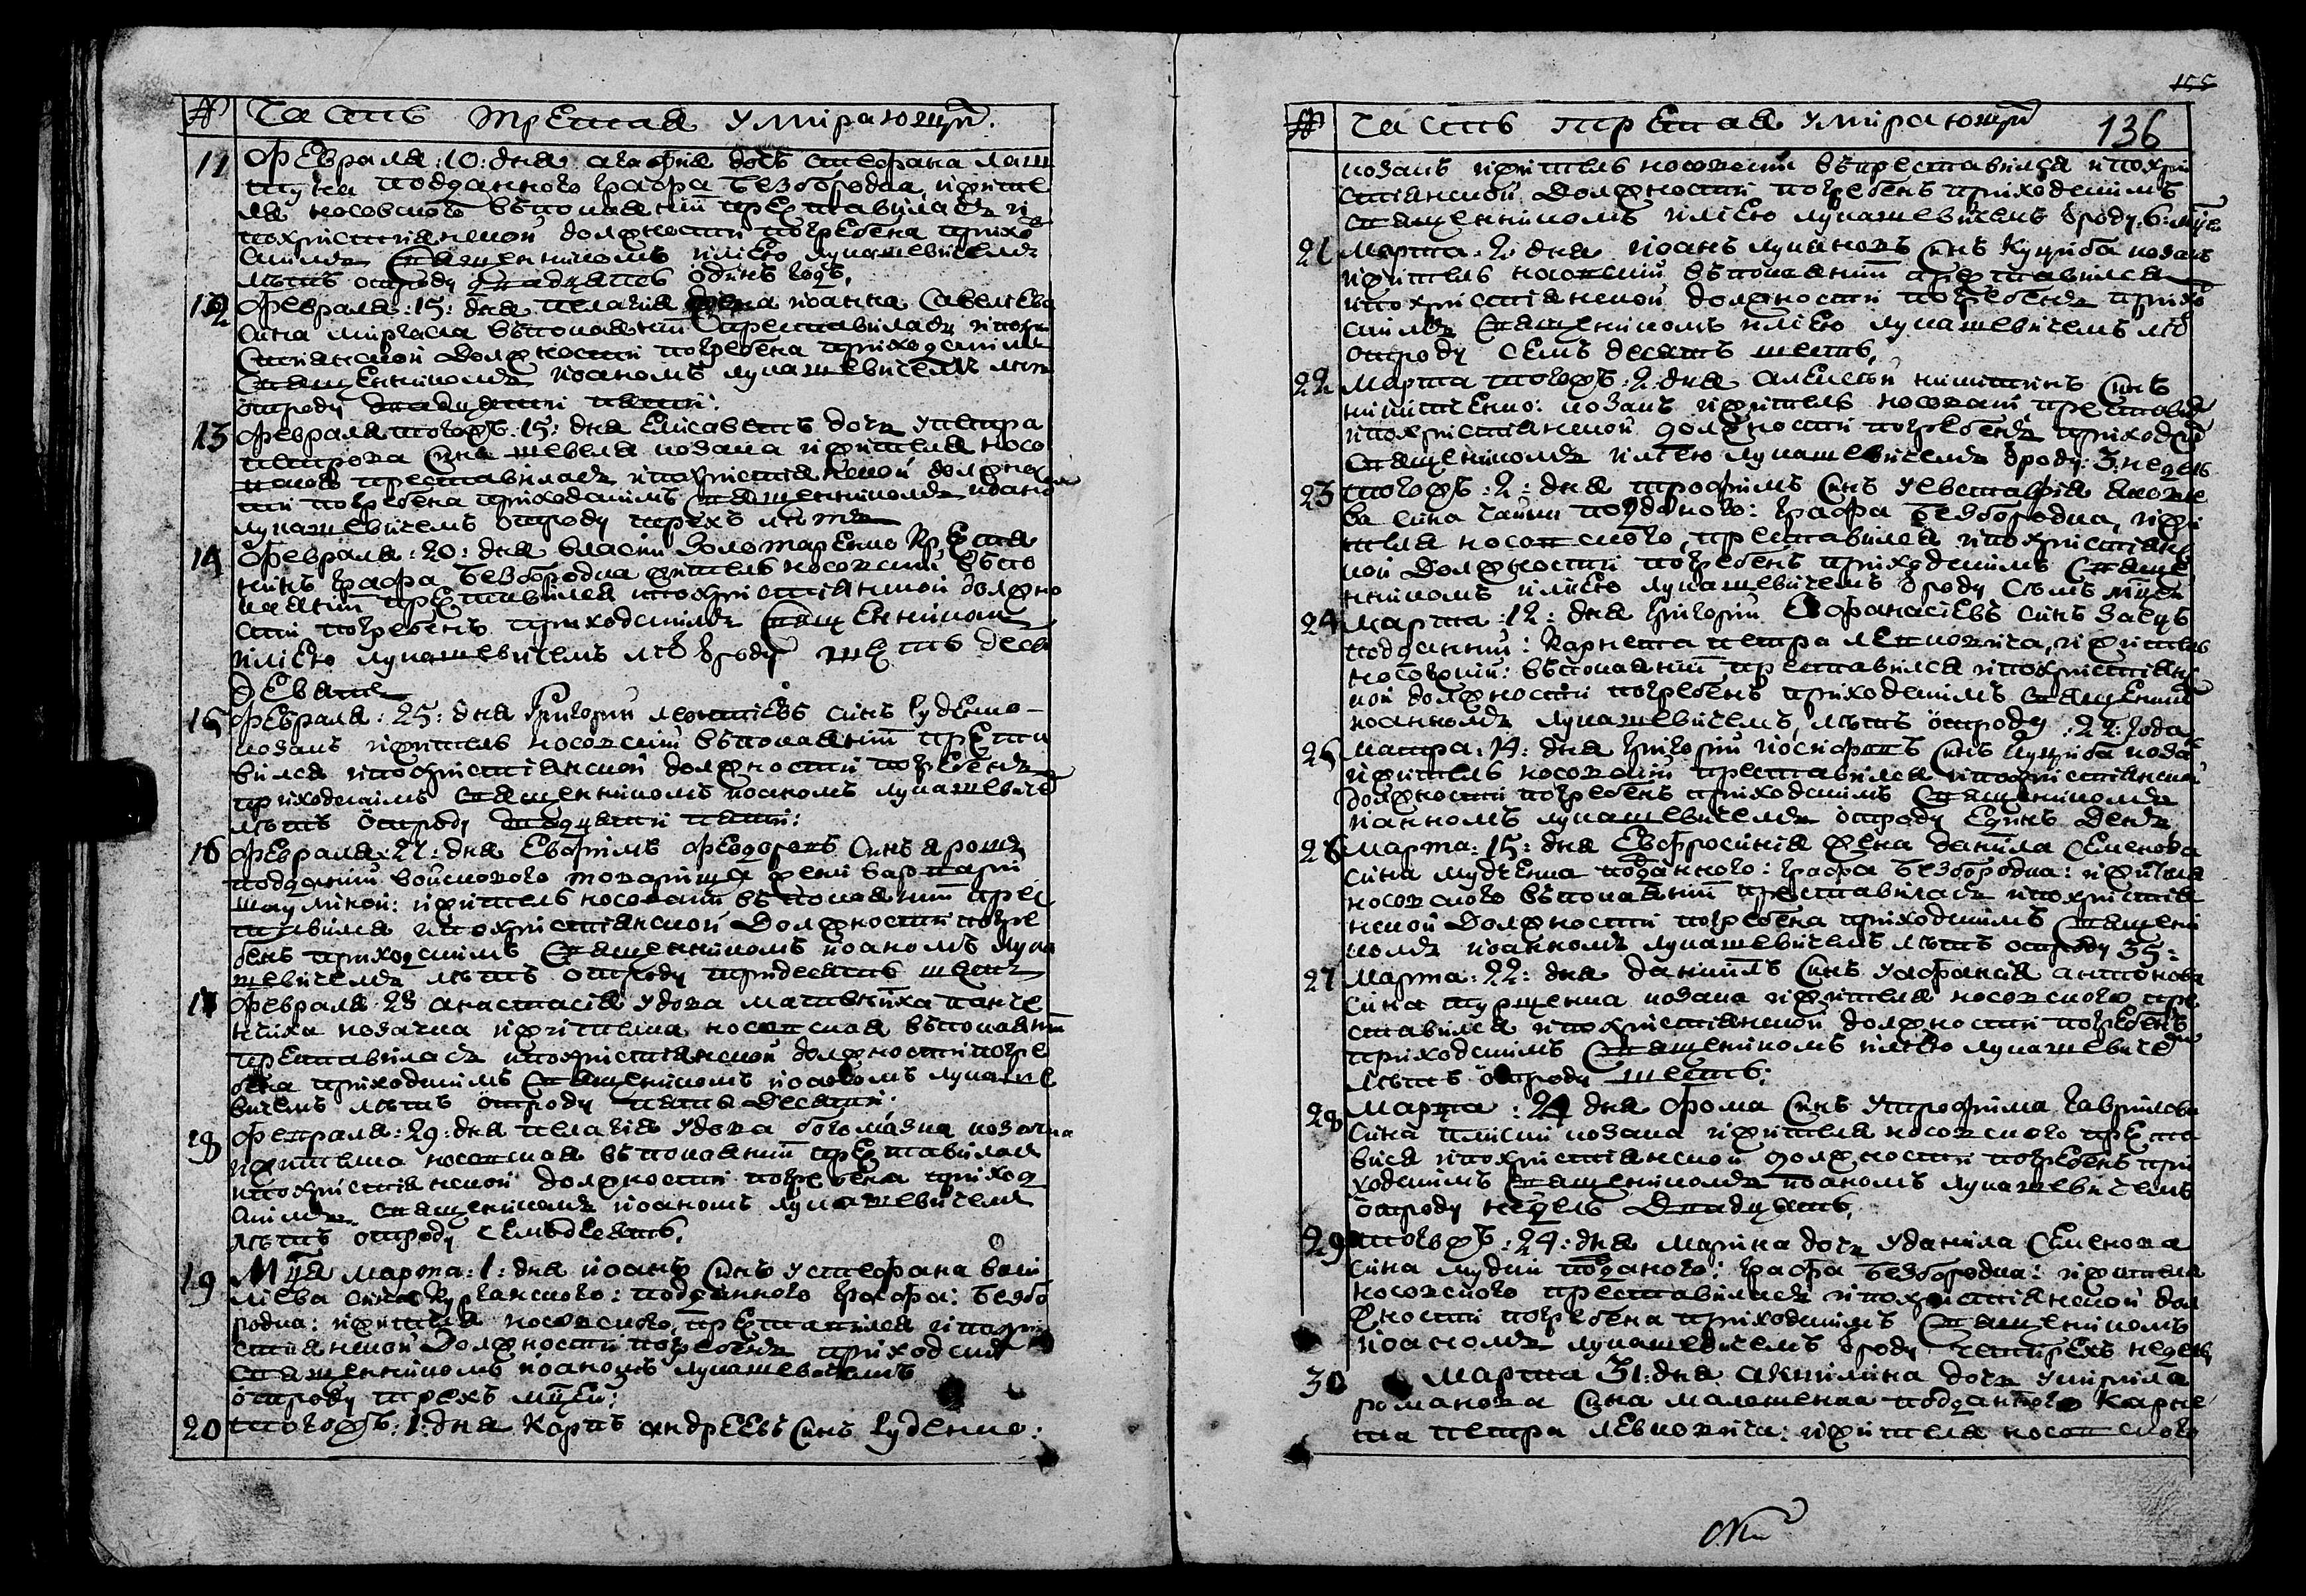 № Часть третая умирающих.
11 Февраля :10: дня агафия дочь стефана лаш
подданного графа безбородка жите
ля носовского въ покаянии преставилась и
похристиянской должности погребена приход
скимъ священникомъ илиею лукашевичемъ
лѣтъ отроду двадцять одинъ годъ,
12 Февраля :15: дня пелагия жена иоанна савелева
сина миргасла въ покаянии преставилась и похри
стиянской должности погребена приходскимъ
священникомъ иоаномъ лукашевичемъ лѣтъ
отроду двадцяти пяти:
13 Февраля тогожъ :15: дня елисаветъ дочь у петра
петрова сина шевеля козака жителя носо
вского преставилась и похристиянской должнос
ти погребена приходскимъ священникомъ иоано
лукашевичемъ отроду трехъ лѣтъ
14 Февраля :20: дня власий золотаренко крестя
нинъ графа безбородка житель носовский въ по
каянии преставился и похристиянской должно
сти погребенъ приходскимъ священникомъ
илиею лукашевичемъ лѣтъ ороду шестьдесятъ
девять
15 Февраля :25: дня григорий леонтиевъ синъ гуденко
козакъ житель носовский въ покаянии преста
вился и похристиянской должности погребенъ
приходскимъ священникомъ иоаномъ лукашевиче
лѣтъ отроду двадцяти пяти:
16 Февраля :27: дня евфимъ феодоровъ синъ ярошъ
подданний войскового товариша жени варвари
шаулиной: житель носовский въ покаянии прес
тавился и похристиянской должности погре
бенъ приходскимъ священникомъ иоаномъ лука
шевичемъ лѣтъ отроду тридесять шесть
17 Февраля 28 анастасия удова матвѣиха панче
нчиха козачка жителка носовская въ покаянии
преставилась и похристиянской должности погре
бена приходскимъ священикомъ иоаномъ лукаше
вичемъ лѣтъ отроду пятьдесяти.
18 Февраля :29: дня пелагия удова богомазка козачка
жителка носовская въ покаянии преставилася
и похристиянской должности погребена приход
скимъ священикомъ иоаномъ лукашевичемъ
лѣтъ отроду семьдесятъ,
19 Мца марта :1: дня иоанъ синъ у стефана васи
лиева сина курганского: подданного графа: безбо
родка: жителя носовского, преставился и похри
стиянской должности погребенъ приходским
священникомъ иоаномъ лукашевичемъ
отроду трехъ мцей:
20 Тогожъ :1: дня карпъ андреевъ синъ гуденко:
155
№ Часть третая умирающих 136
козакъ житель носовский въ преставился и похри
стиянской должности погребенъ приходскимъ
священникомъ илиею лукашевичемъ ороду :6: мце
21 Марта :2: дня иоанъ лукяновъ синъ куциба козакъ
житель носовский въ покаянии преставился
и похристиянской должности погребенъ прихо
скимъ священикомъ илиею лукашевичемъ лѣт
отроду семъ десятъ шесть,
22 Марта тогожъ :2: дня алексѣй никитинъ синъ
никитченко: козакъ житель носовский, преставил
и похристиянской должности погребенъ приходск
священикомъ илиею лукашевичемъ ороду :3: недель
23 Тогожъ :2: дня трофимъ синъ у евстафия яковле
ва сина гайки подданого: графа безбородка, жи
теля носовского, преставился и похристиянс
кой должности погребенъ приходскимъ священ
никомъ илиею лукашевичемъ ороду семъ мцей
24 Марта :12: дня григорий афанасиевъ синъ заецъ
подданний: карнета петра левковича, житель
носовский: въ покаянии преставился и похристиянс
кой должности погребенъ приходскимъ священник
иоанномъ лукашевичемъ, лѣтъ отроду :22: года
25 Матра :14: дня григорий иосифовъ синъ куциба козак
житель носовский преставился и похристиянской
должности погребенъ приходскимъ священикомъ
иоанномъ лукашевичемъ отроду единъ день
26 Марта :15: дня евфросиния жена данила семенова
сина мудренка подданного: графа безбородка: жителя
носовского въ покаянии преставилась и похристия
нской должности погребена приходскимъ священи
комъ иоанномъ лукашевичемъ лѣтъ отроду 35:
27 Марта :22: дня даниилъ синъ у афанасия антонова
сина турценка козака жителя носовского пре
ставился и похристиянской должности погребенъ
приходскимъ священикомъ илиею лукашевичем
лѣтъ отроду шесть:
28 Марта :24 дня фома синъ у трофима гаврилова
сина козака жителя носовского преста
вися и похристиянской должности погребенъ при
ходскимъ священикомъ иоаномъ лукашевичемъ
отроду недель двадцять,
29 Тогожъ :24: дня марина дочь у данила семенова
сина мудрий подданого: графа безбородка: жителя
носовского преставилась и похристиянской дол
жности погребена приходскимъ священикомъ
иоаномъ лукашевичемъ ороду четирехъ недель
30 Марта 31: дня акилина дочь у кирила
романова сина малошенка подданного карне
та петра левковича: жителя носовского